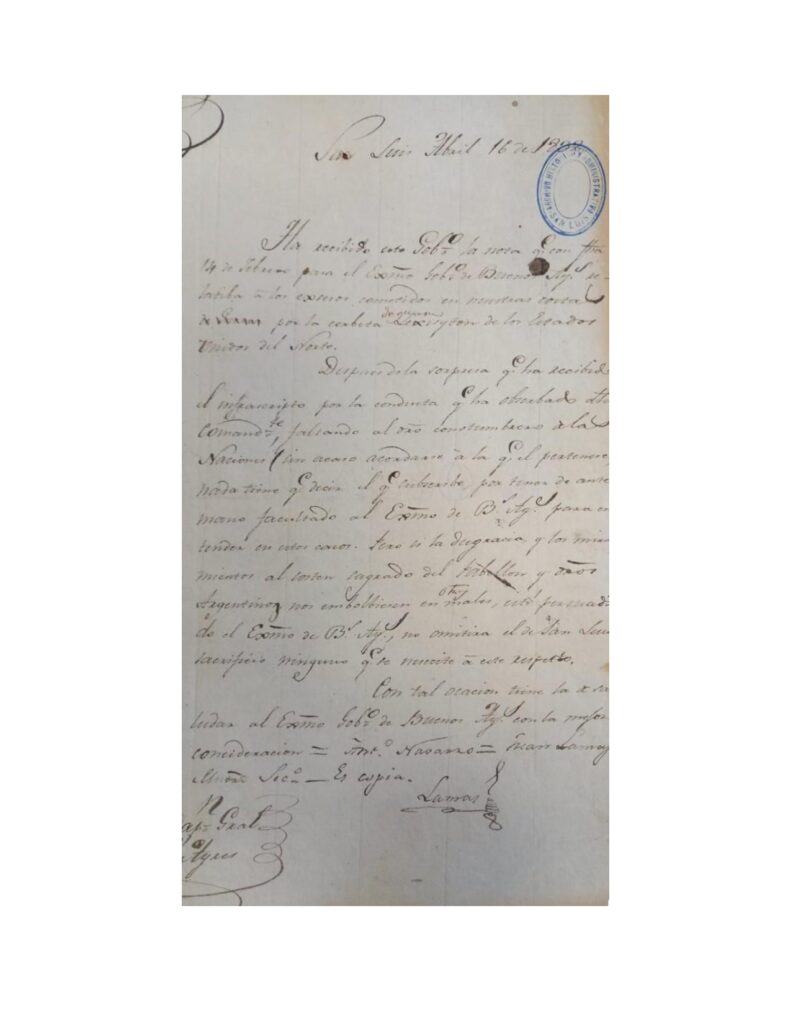 San Luis Abril 16 de 1832
ARCHIVO HISTORICO Y ADMINISTRATIVO
SAN LUIS
Ha recibido este Gobº la nota qe con fha
14 de Febrero para el Exmo Gobº de Buenos Ays re-
latiba á los exesos cometidos en nuestras costas
por la corbeta de guerra Lexington de los Estados
Unidos del Norte.
Despues de la sorpresa qe ha recibido
el infrascripto por la conducta qe ha obserbado dho
comandte, faltando al dro constumbres de las
Naciones (sin acaso acordarse á la qe el pertenece,
nada tiene qe decir el qe subscribe, por tener de ante
mano facultado al Exmo de Bs Ays para en
tender en estos casos. Pero si la desgracia y los mira
mientos al sosten sagrado del Pabellon y dros
Argentinos nos embolbiesen en otros males, esté persuadi
do el Exmo de Bs Ays, no omitira el de San Luis
sacrificio ninguno qe se necesite á este respecto.
Con tal ocacion tiene la de sa
ludar al Exmo Gobº de Buenos Ays con la mayor
concideracion = Navarro = Juan Lamas
Secº — Es copia.
Lamas
Gral
Ayres